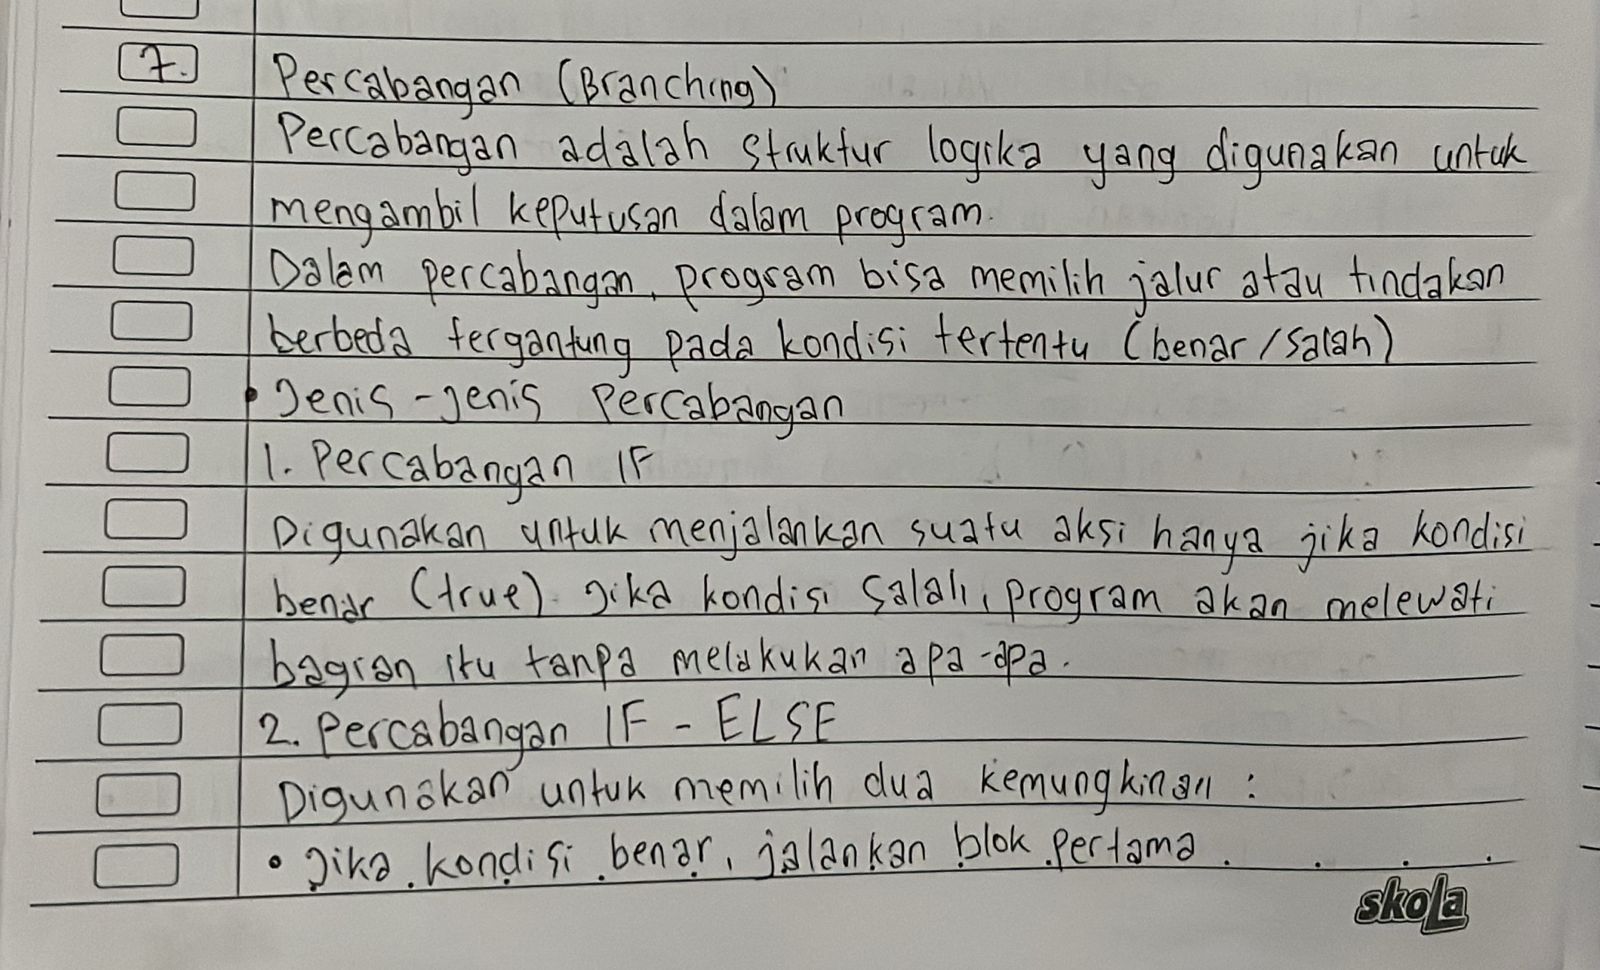 7. Percabangan (Branching)
Percabangan adalah struktur logika yang digunakan untuk
mengambil keputusan dalam program.
Dalam percabangan, program bisa memilih jalur atau tindakan
berbeda tergantung pada kondisi tertentu (benar/salah)
• Jenis-jenis Percabangan
1. Percabangan IF
Digunakan untuk menjalankan suatu aksi hanya jika kondisi
benar (true). Jika kondisi salah, program akan melewati
bagian itu tanpa melakukan apa-apa.
2. Percabangan IF - ELSE
Digunakan untuk memilih dua kemungkinan :
• Jika kondisi benar, jalankan blok pertama.
skola